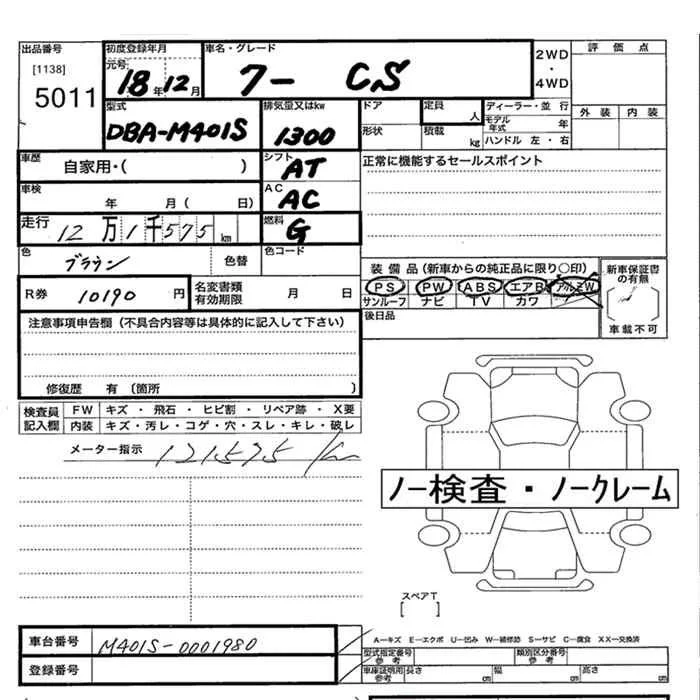 出品番号
[1138]
5011
初度登録年月
元号
18年12月
車名・グレード
クー CS
2WD
・
4WD
評価点
外装 内装
型式
DBA-M401S
排気量又はkw
1300
ドア
定員
人
形状
積載
kg
ディーラー・並行
モデル年式 年
ハンドル 左・右
車歴
自家用・( )
シフト
AT
正常に機能するセールスポイント
車検
年 月( 日)
AC
AC
走行
12万1千575km
燃料
G
色
ブラウン
色替
色コード
R券 10190円
名変書類有効期限 月 日
装備品(新車からの純正品に限り○印)
PS PW ABS エアB アルミW
サンルーフ ナビ TV カワ
後日品
新車保証書の有無
車載不可
注意事項申告欄(不具合内容等は具体的に記入して下さい)
修復歴 有(箇所 )
検査員記入欄
FW キズ・飛石・ヒビ割・リペア跡・X要
内装 キズ・汚レ・コゲ・穴・スレ・キレ・破レ
メーター指示 121575 km
ノー検査・ノークレーム
スペアT
[ ]
車台番号 M401S-0001980
登録番号
A-キズ E-エクボ U-凹み W-補修跡 S-サビ C-腐食 XX-交換済
型式指定番号参考
類別区分番号参考
車庫証明用参考 長さ cm 幅 cm 高さ cm